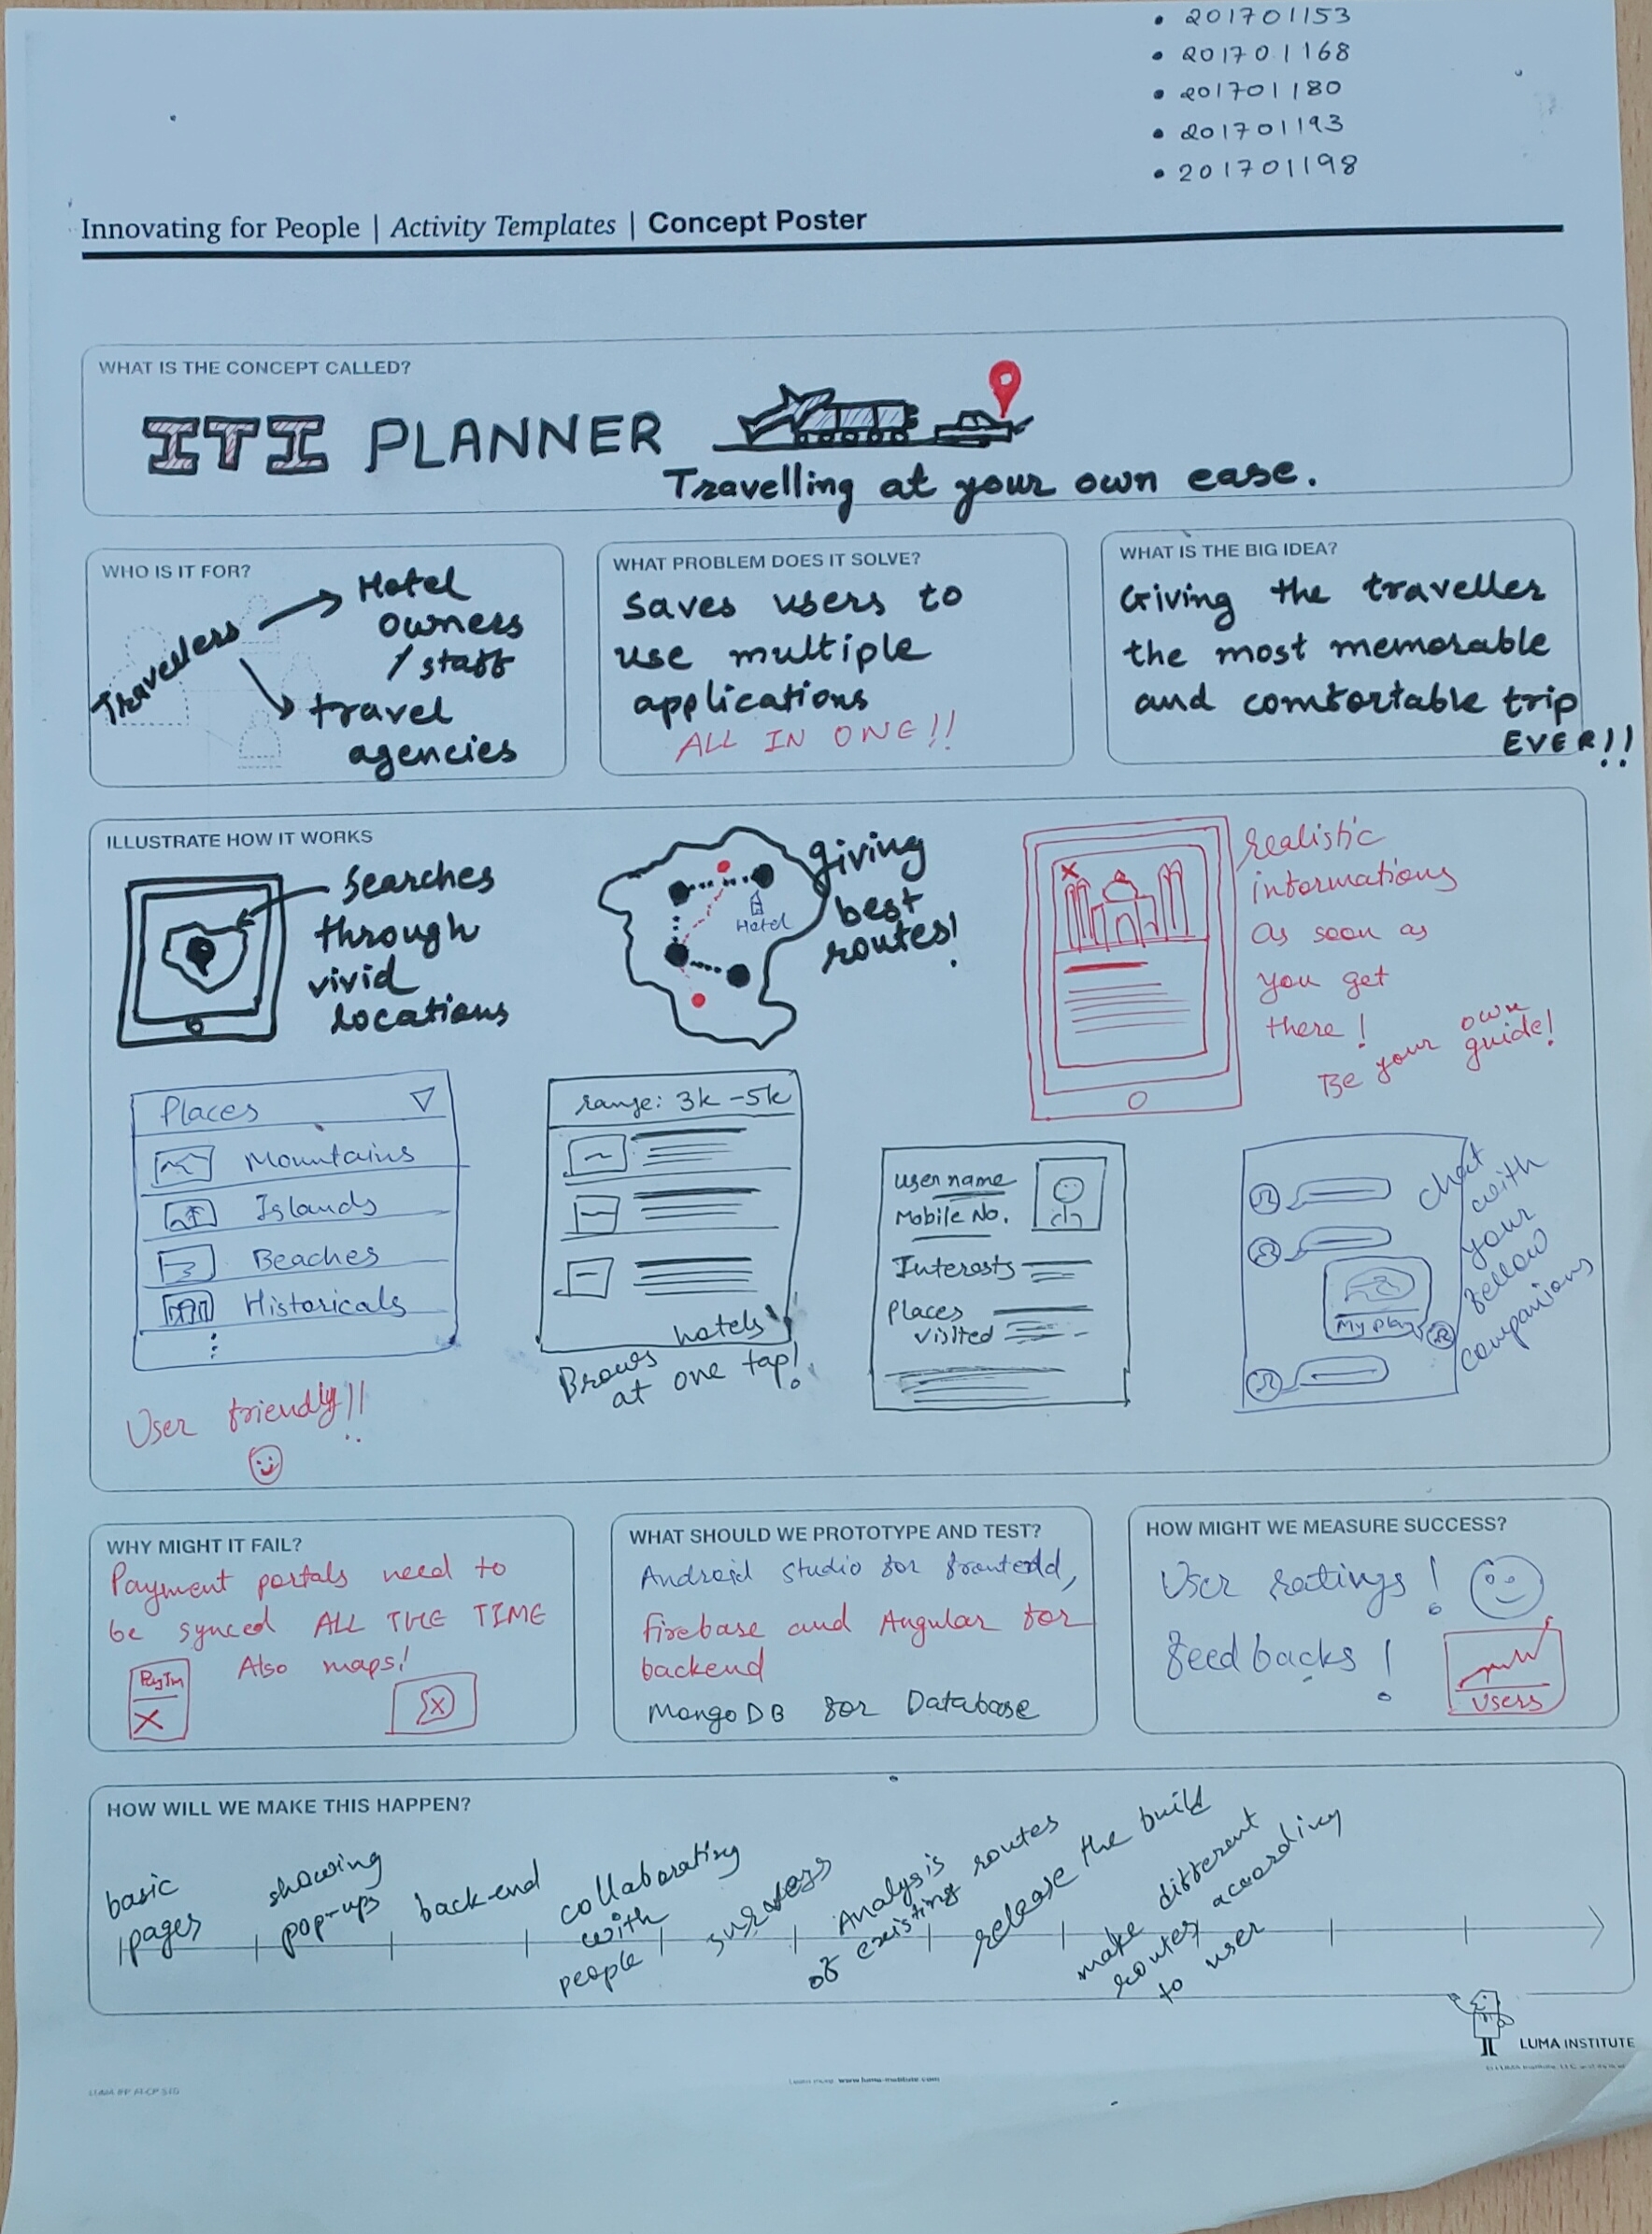 • 201701153
• 201701168
• 201701180
• 201701193
• 201701198
Innovating for People | Activity Templates | Concept Poster
WHAT IS THE CONCEPT CALLED?
ITI PLANNER
Travelling at your own ease.
WHO IS IT FOR?
Travellers
Hotel
owners
/ staff
travel
agencies
WHAT PROBLEM DOES IT SOLVE?
Saves users to
use multiple
applications
ALL IN ONE!!
WHAT IS THE BIG IDEA?
Giving the traveller
the most memorable
and comfortable trip
EVER!!
ILLUSTRATE HOW IT WORKS
Searches
through
vivid
locations
Hotel
giving
best
routes!
realistic
informations
as soon as
you get
there!
Be your own
guide!
Places
Mountains
Islands
Beaches
Historicals
User friendly!!
range: 3k -5k
Brows hotels
at one tap!
User name
Mobile No.
Interests
Places
visited
My plan
chat
with
your
fellow
companions
WHY MIGHT IT FAIL?
Payment portals need to
be synced ALL THE TIME
Also maps!
PayTm
X
X
WHAT SHOULD WE PROTOTYPE AND TEST?
Android studio for frontedd,
firebase and Angular for
backend
MongoDB for Database
HOW MIGHT WE MEASURE SUCCESS?
User ratings!
feedbacks!
Users
HOW WILL WE MAKE THIS HAPPEN?
basic
pages
showing
pop-ups
back-end
collaborating
with
people
surveys
Analysis
of existing routes
release the build
make different
routes according
to user
LUMA INSTITUTE
www.luma-institute.com